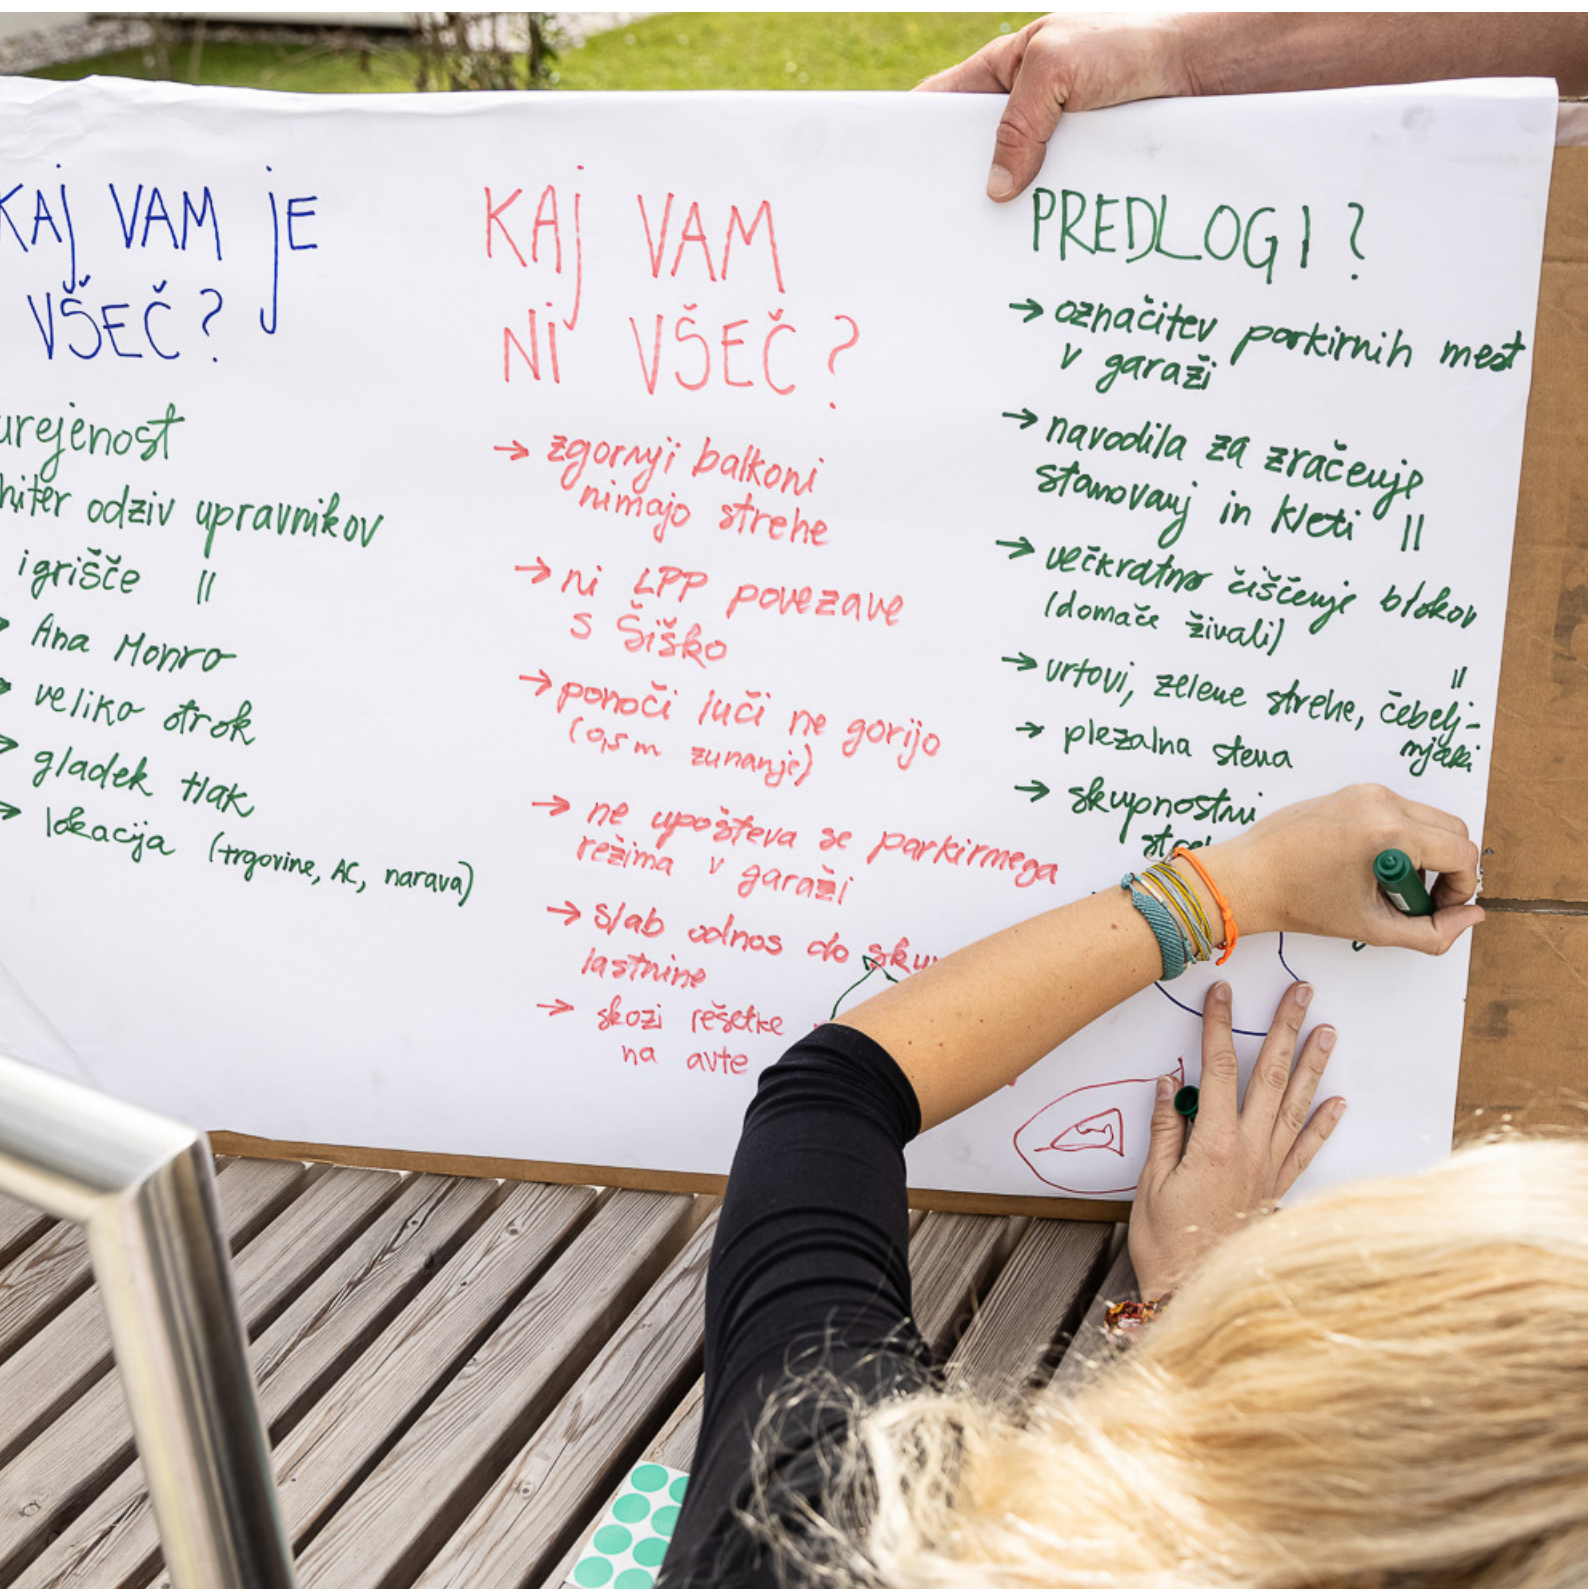 KAJ VAM JE
VŠEČ?
urejenost
hiter odziv upravnikov
igrišče ||
→ Ana Monro
→ veliko otrok
→ gladek tlak
→ lokacija (trgovine, AC, narava)
KAJ VAM
NI VŠEČ?
→ zgornji balkoni
nimajo strehe
→ ni LPP povezave
s Šiško
→ ponoči luči ne gorijo
(0,5 m zunanje)
→ ne upošteva se parkirnega
režima v garaži
→ slab odnos do sku
lastnine
→ skozi rešetke
na avte
PREDLOGI?
→ označitev parkirnih mest
v garaži
→ navodila za zračenje
stanovanj in kleti ||
→ večkratno čiščenje blokov
(domače živali) ||
→ vrtovi, zelene strehe, čebelj-
njaki
→ plezalna stena
→ skupnostni